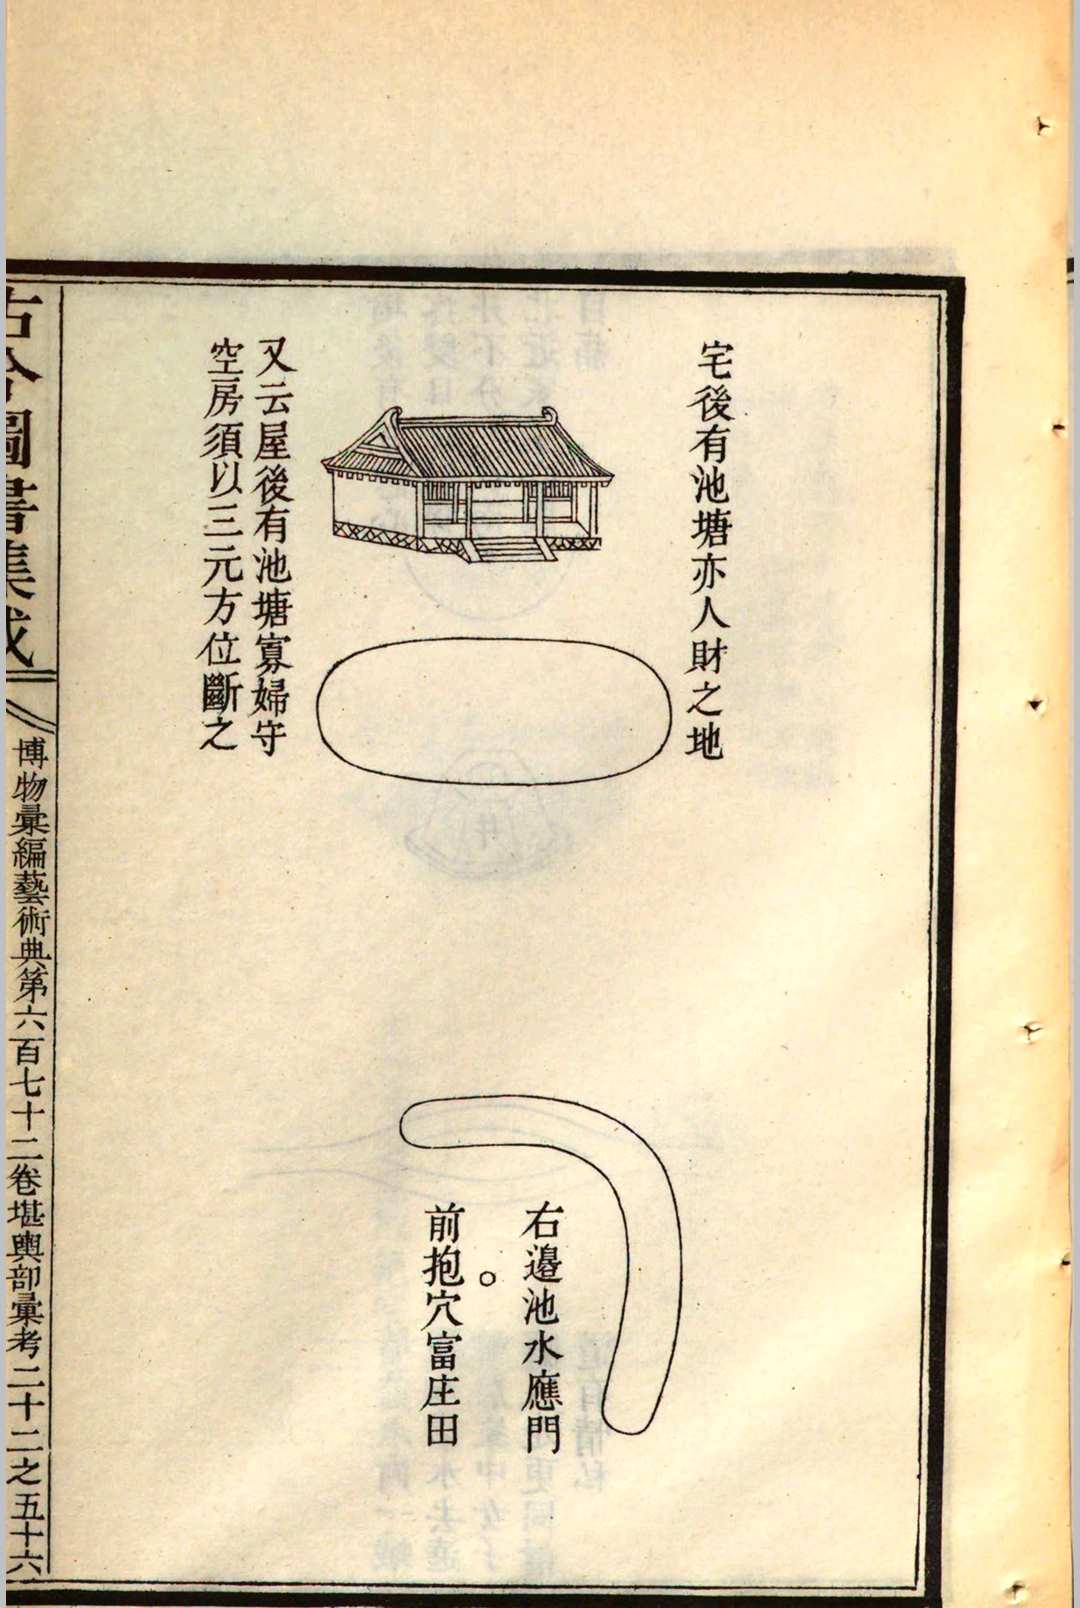 宅後有池塘亦人財之地
又云屋後有池塘寡婦守
空房須以三元方位斷之
右邉池水應門
前抱穴富庄田
古今圖書集成
博物彙編藝術典第六百七十二卷堪輿部彙考二十二之五十六